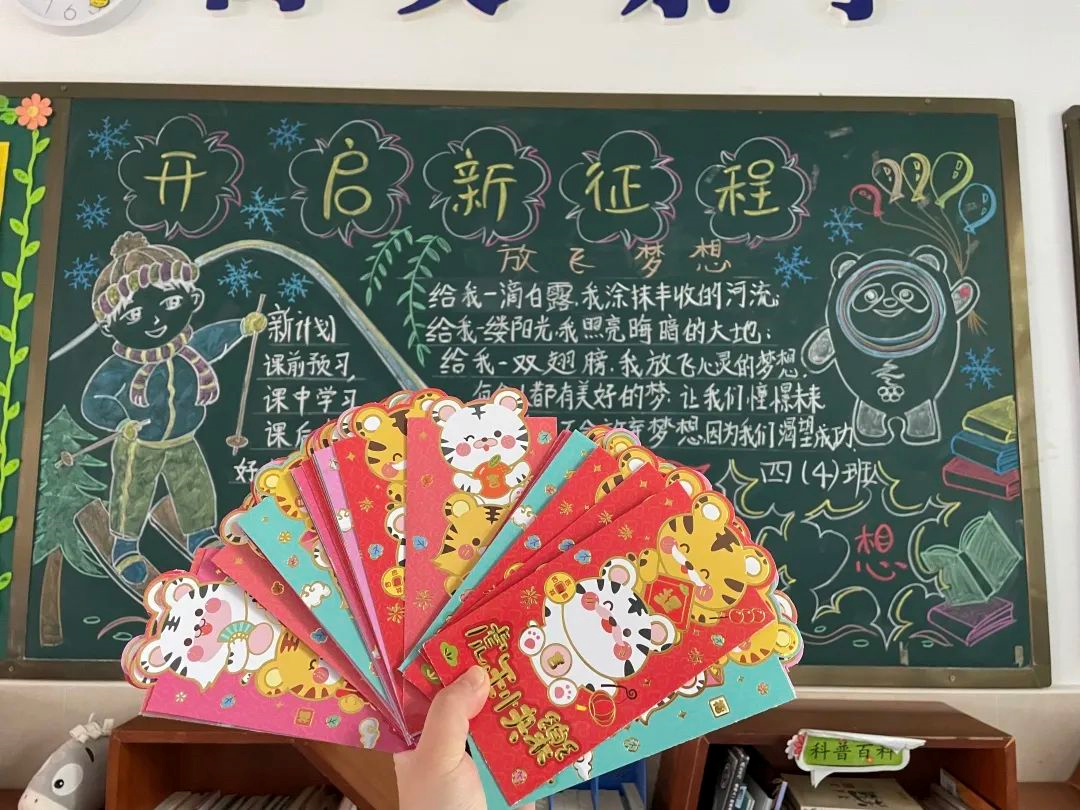 开启新征程
放飞梦想
给我一滴白露,我涂抹丰收的河流;
给我一缕阳光,我照亮晦暗的大地;
给我一双翅膀,我放飞心灵的梦想,
都有美好的梦 让我们憧憬未来
梦想因为我们渴望成功
四(4)班
新计划
课前预习
课中学习
课后
好
想
虎年快乐
科普百科